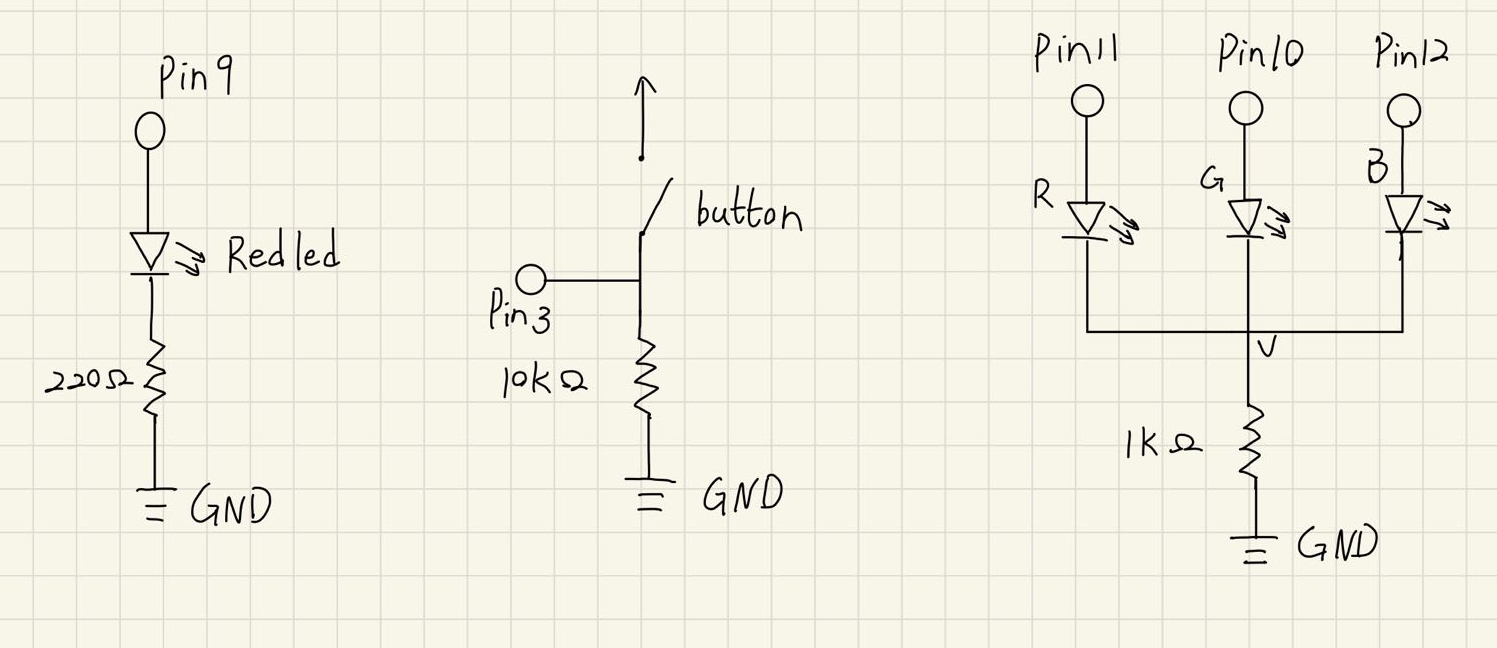 Pin 9
Red led
220Ω
GND
button
Pin 3
10kΩ
GND
Pin11
Pin10
Pin12
R
G
B
V
1kΩ
GND